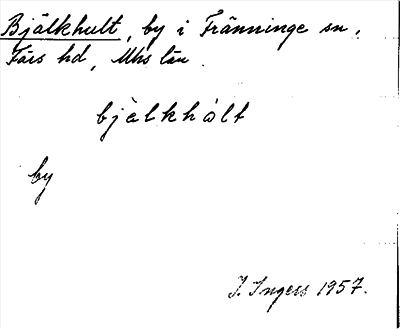 Bjälkhult, by i Tränninge sn,
Färs hd, Mhs län.
bjèlkhòlt
by
I. Ingers 1957.